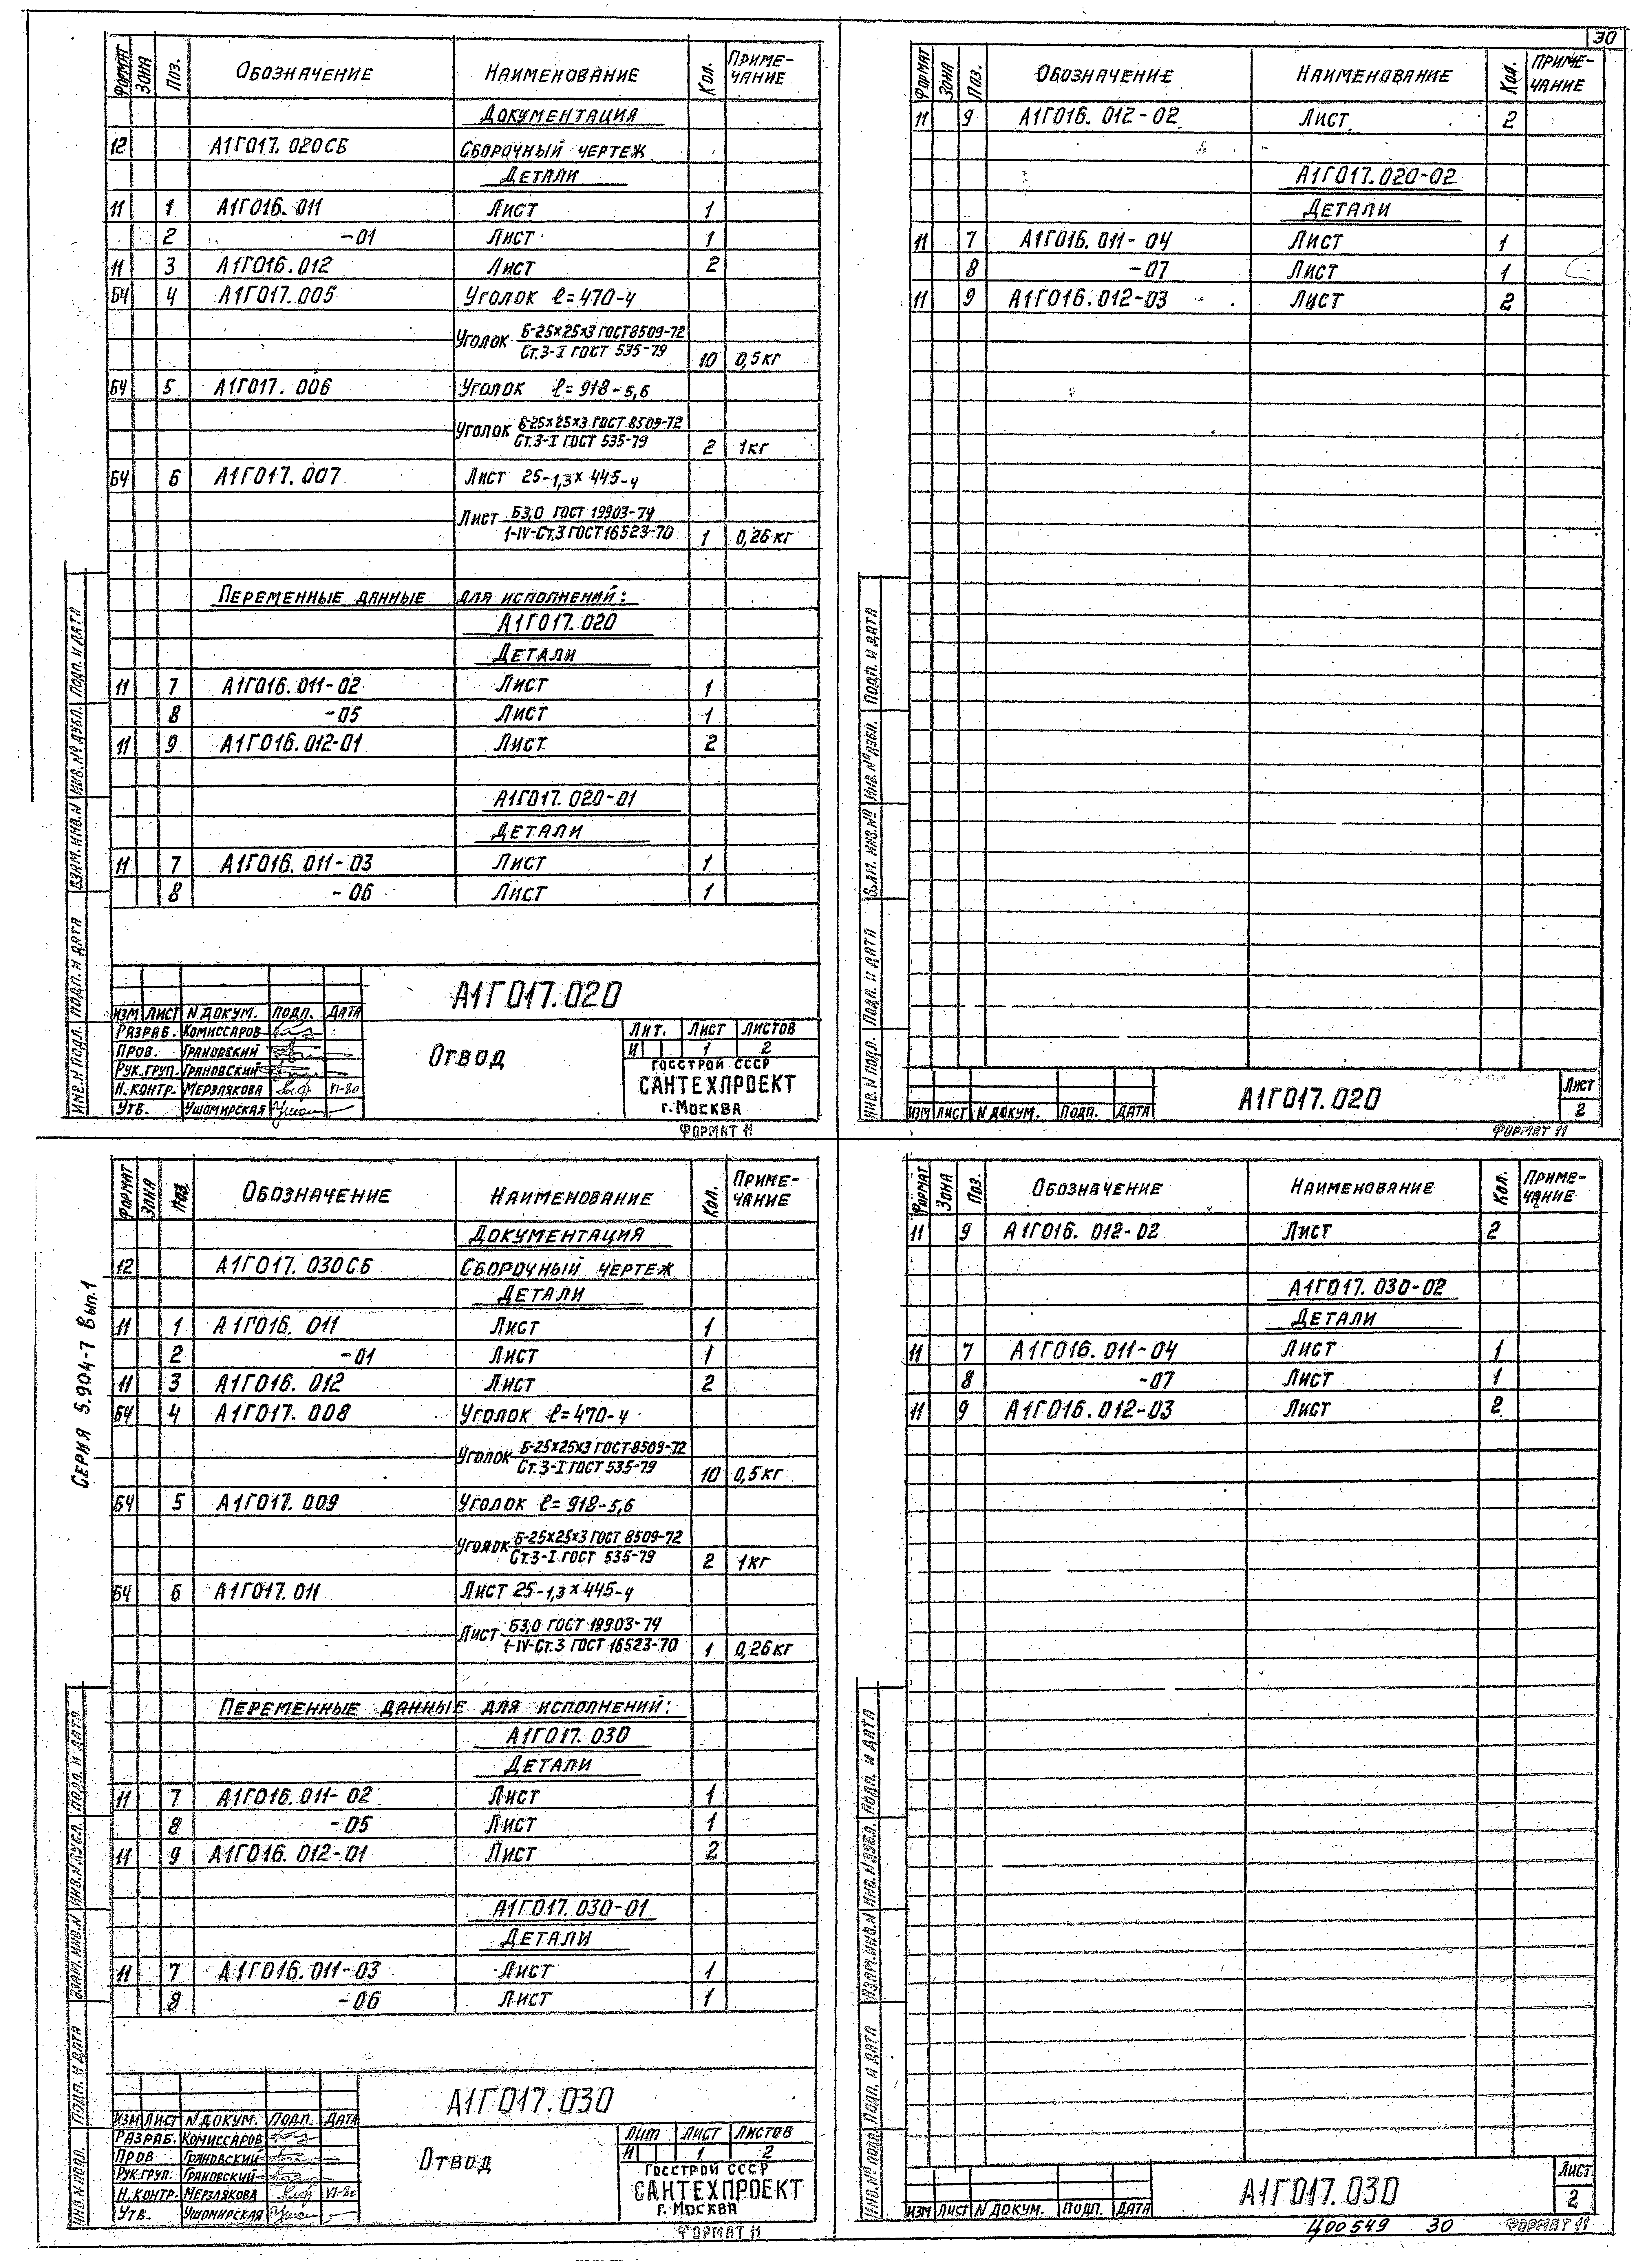 30
Формат Зона Поз. Обозначение Наименование Кол. Примечание
Документация
12 А1Г017.020СБ Сборочный чертеж
Детали
11 1 А1Г016.011 Лист 1
2 -01 Лист 1
11 3 А1Г016.012 Лист 2
БЧ 4 А1Г017.005 Уголок ℓ=470-4
Уголок Б-25×25×3 ГОСТ 8509-72
Ст.3-I ГОСТ 535-79 10 0,5кг
БЧ 5 А1Г017.006 Уголок ℓ=918-5,6
Уголок Б-25×25×3 ГОСТ 8509-72
Ст.3-I ГОСТ 535-79 2 1кг
БЧ 6 А1Г017.007 Лист 25-1,3×445-4
Лист Б3,0 ГОСТ 19903-74
1-IV-Ст.3 ГОСТ 16523-70 1 0,26кг
Переменные данные для исполнений:
А1Г017.020
Детали
11 7 А1Г016.011-02 Лист 1
8 -05 Лист 1
11 9 А1Г016.012-01 Лист 2
А1Г017.020-01
Детали
11 7 А1Г016.011-03 Лист 1
8 -06 Лист 1
Инв.N подл. Подп. и дата Взам. инв.N Инв.№ дубл. Подп. и дата
А1Г017.020
Изм Лист N докум. Подп. Дата
Разраб. Комиссаров
Пров. Грановский
Рук.груп. Грановский
Н.контр. Мерзлякова VI-80
Утв. Ушомирская
Отвод
Лит. Лист Листов
И 1 2
Госстрой СССР
САНТЕХПРОЕКТ
г.Москва
Формат 11
Формат Зона Поз. Обозначение Наименование Кол. Примечание
11 9 А1Г016.012-02 Лист 2
А1Г017.020-02
Детали
11 7 А1Г016.011-04 Лист 1
8 -07 Лист 1
11 9 А1Г016.012-03 Лист 2
Инв.N подл. Подп. и дата Взам. инв.№ Инв.№ дубл. Подп. и дата
Изм Лист N докум. Подп. Дата
А1Г017.020
Лист
2
Формат 11
Серия 5.904-7 Вып.1
Формат Зона Поз. Обозначение Наименование Кол. Примечание
Документация
12 А1Г017.030СБ Сборочный чертеж
Детали
11 1 А1Г016.011 Лист 1
2 -01 Лист 1
11 3 А1Г016.012 Лист 2
БЧ 4 А1Г017.008 Уголок ℓ=470-4
Уголок Б-25×25×3 ГОСТ 8509-72
Ст.3-I ГОСТ 535-79 10 0,5кг
БЧ 5 А1Г017.009 Уголок ℓ=918-5,6
Уголок Б-25×25×3 ГОСТ 8509-72
Ст.3-I ГОСТ 535-79 2 1кг
БЧ 6 А1Г017.011 Лист 25-1,3×445-4
Лист Б3,0 ГОСТ 19903-74
1-IV-Ст.3 ГОСТ 16523-70 1 0,26кг
Переменные данные для исполнений:
А1Г017.030
Детали
11 7 А1Г016.011-02 Лист 1
8 -05 Лист 1
11 9 А1Г016.012-01 Лист 2
А1Г017.030-01
Детали
11 7 А1Г016.011-03 Лист 1
8 -06 Лист 1
Инв.N подл. Подп. и дата Взам. инв.N Инв.N дубл. Подп. и дата
А1Г017.030
Изм Лист N докум. Подп. Дата
Разраб. Комиссаров
Пров Грановский
Рук.груп. Грановский
Н.контр. Мерзлякова VI-80
Утв. Ушомирская
Отвод
Лит Лист Листов
И 1 2
Госстрой СССР
САНТЕХПРОЕКТ
г.Москва
Формат 11
Формат Зона Поз. Обозначение Наименование Кол. Примечание
11 9 А1Г016.012-02 Лист 2
А1Г017.030-02
Детали
11 7 А1Г016.011-04 Лист 1
8 -07 Лист 1
11 9 А1Г016.012-03 Лист 2
Инв.№ подл. Подп. и дата Взам.инв.N Инв.N дубл. Подп. и дата
Изм Лист N докум. Подп. Дата
А1Г017.030
Лист
2
Ц00549 30 Формат 11